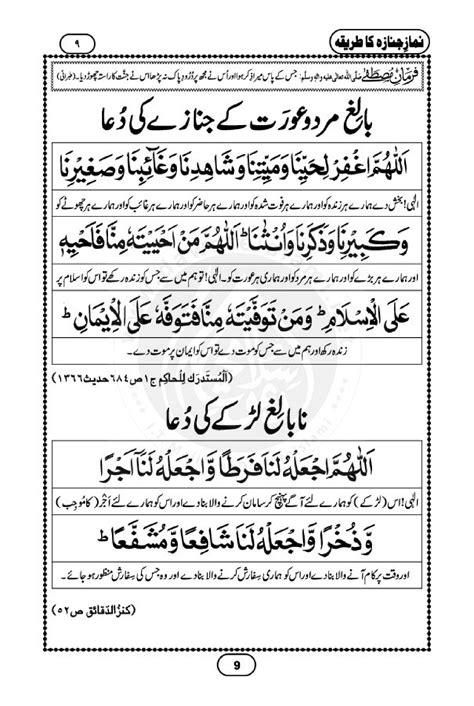 نمازِ جنازہ کا طریقہ
۹
فرمانِ مصطفےٰ صلی اللہ تعالیٰ علیہ والہٖ وسلم: جس کے پاس میرا ذکر ہوا اور اُس نے مجھ پر دُرُودِ پاک نہ پڑھا اس نے جنّت کا راستہ چھوڑ دیا۔ (طبرانی)
بالِغ مرد و عورَت کے جنازے کی دُعا
اَللّٰهُمَّ اغْفِرْ لِحَيِّنَا وَمَيِّتِنَا وَشَاهِدِنَا وَغَآئِبِنَا وَصَغِيْرِنَا
الٰہی! بخش دے ہمارے ہر زندہ کو اور ہمارے ہر فوت شدہ کو اور ہمارے ہر حاضر کو اور ہمارے ہر غائب کو اور ہمارے ہر چھوٹے کو
وَكَبِيْرِنَا وَذَكَرِنَا وَاُنْثٰنَا ؕ اَللّٰهُمَّ مَنْ اَحْيَيْتَهٗ مِنَّا فَاَحْيِهٖ
اور ہمارے ہر بڑے کو اور ہمارے ہر مرد کو اور ہماری ہر عورت کو۔ الٰہی! تو ہم میں سے جس کو زندہ رکھے تو اس کو اسلام پر
عَلَى الْاِسْلَامِ ؕ وَمَنْ تَوَفَّيْتَهٗ مِنَّا فَتَوَفَّهٗ عَلَى الْاِيْمَانِ ؕ
زندہ رکھ اور ہم میں سے جس کو موت دے تو اس کو ایمان پر موت دے۔
(اَلْمُستَدرَك لِلْحاكِم ج۱ ص۶۸۴ حدیث ۱۳۶۶)
نابالِغ لڑکے کی دُعا
اَللّٰهُمَّ اجْعَلْهُ لَنَا فَرَطًا وَّاجْعَلْهُ لَنَآ اَجْرًا
الٰہی! اس (لڑکے) کو ہمارے لئے آگے پہنچ کر سامان کرنے والا بنا دے اور اس کو ہمارے لئے اَجْر (کا مُوجِب)
وَّذُخْرًا وَّاجْعَلْهُ لَنَا شَافِعًا وَّمُشَفَّعًا ؕ
اور وقت پر کام آنے والا بنا دے اور اس کو ہماری سِفارِش کرنے والا بنا دے اور وہ جس کی سِفارِش منظور ہو جائے۔
(كنزُ الدّقائق ص۵۲)
9